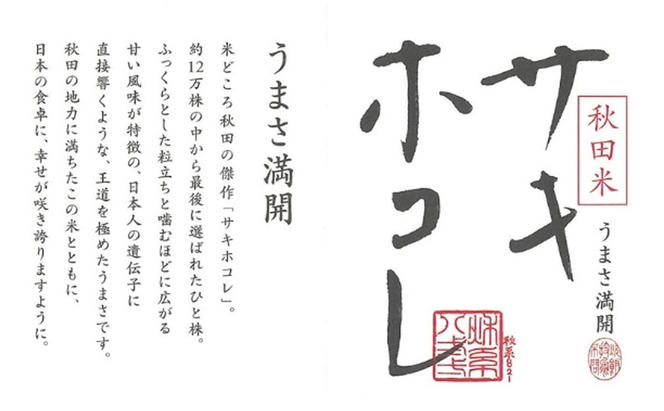 サキ
ホコレ
秋田米
うまさ満開
秋系821
うまさ満開
米どころ秋田の傑作「サキホコレ」。
約12万株の中から最後に選ばれたひと株。
ふっくらとした粒立ちと噛むほどに広がる
甘い風味が特徴の、日本人の遺伝子に
直接響くような、王道を極めたうまさです。
秋田の地力に満ちたこの米とともに、
日本の食卓に、幸せが咲き誇りますように。